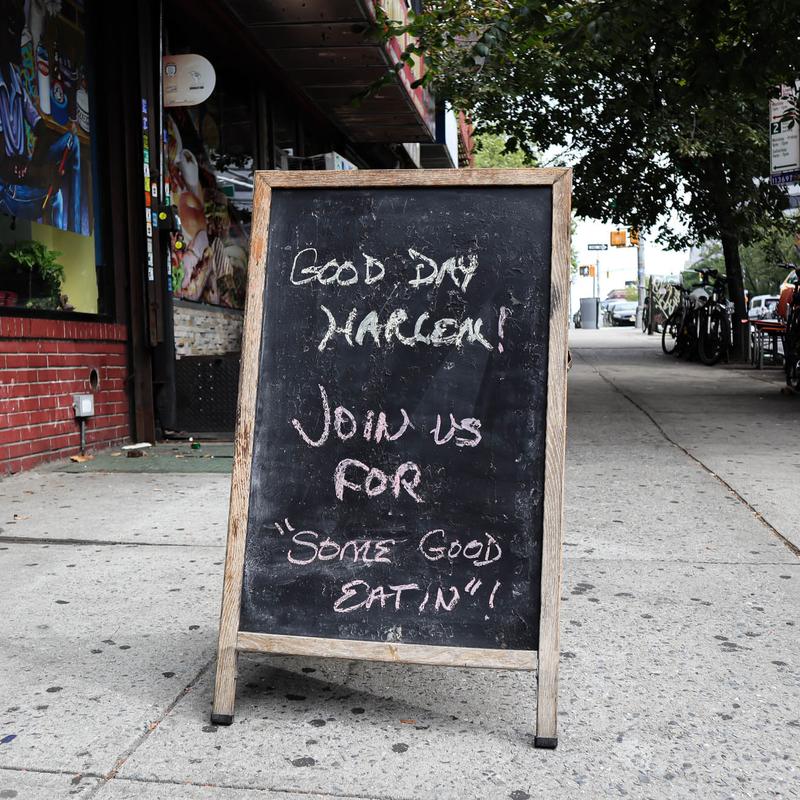 GOOD DAY
HARLEM!
JOIN US
FOR
"SOME GOOD
EATIN"!